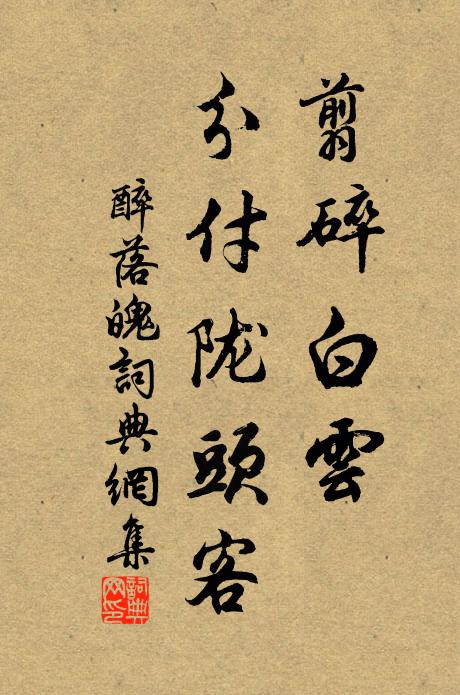 翦碎白雲
分付陇頭客
醉落魄詞典網集
詞典网印